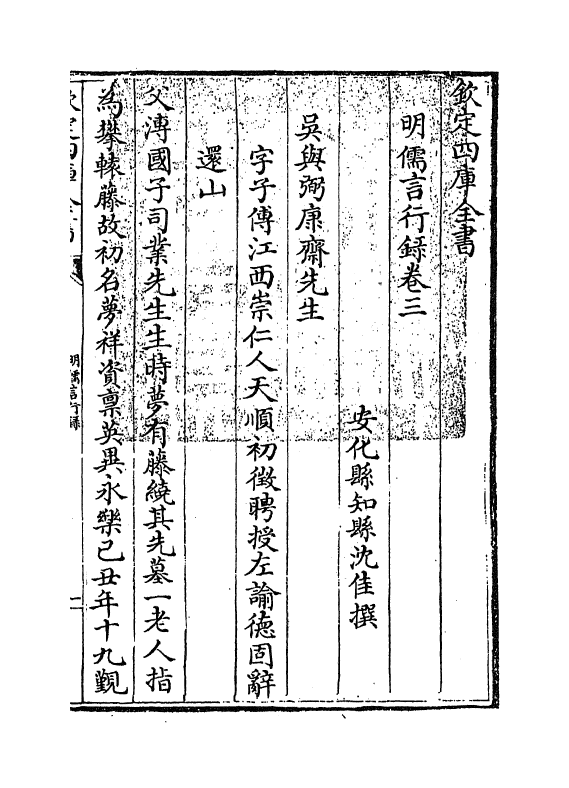 欽定四庫全書
明儒言行録卷三
安化縣知縣沈佳撰
吳與弼康齋先生
字子傅江西崇仁人天順初徴聘授左諭徳固辭
還山
父溥國子司業先生生時夢有藤繞其先墓一老人指
為攀轅藤故初名夢祥資禀英異永樂己丑年十九覲
明儒言行録
一